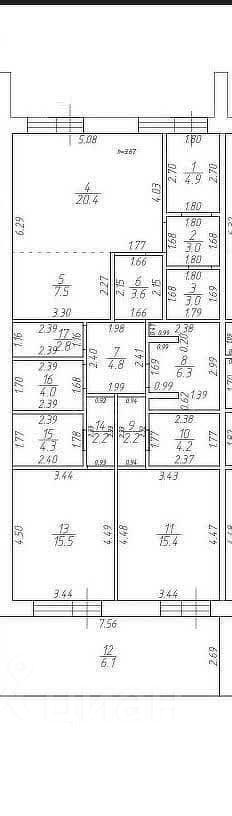 5.08
1.80
h=3.67
2.70
1
4.9
2.70
4
20.4
4.03
1.80
6.29
1.80
1.68
2
3.0
1.68
1.77
1.80
1.66
1.80
5
7.5
2.27
2.15
6
3.6
2.15
1.68
3
3.0
1.69
3.30
1.66
1.79
2.39
1.98
2.38
1.16
17
2.8
1.16
0.20
2.39
0.99
2.39
2.40
7
4.8
2.41
1.69
8
6.3
2.99
1.70
16
4.0
1.68
1.99
0.99
2.39
0.92
0.94
0.62
1.39
2.39
2.38
1.77
15
4.3
1.78
14
2.2
9
2.2
1.77
10
4.2
1.77
2.40
0.93
0.94
2.37
3.44
3.43
4.50
13
15.5
4.49
4.48
11
15.4
4.47
3.44
3.44
7.56
12
6.1
2.69
циан